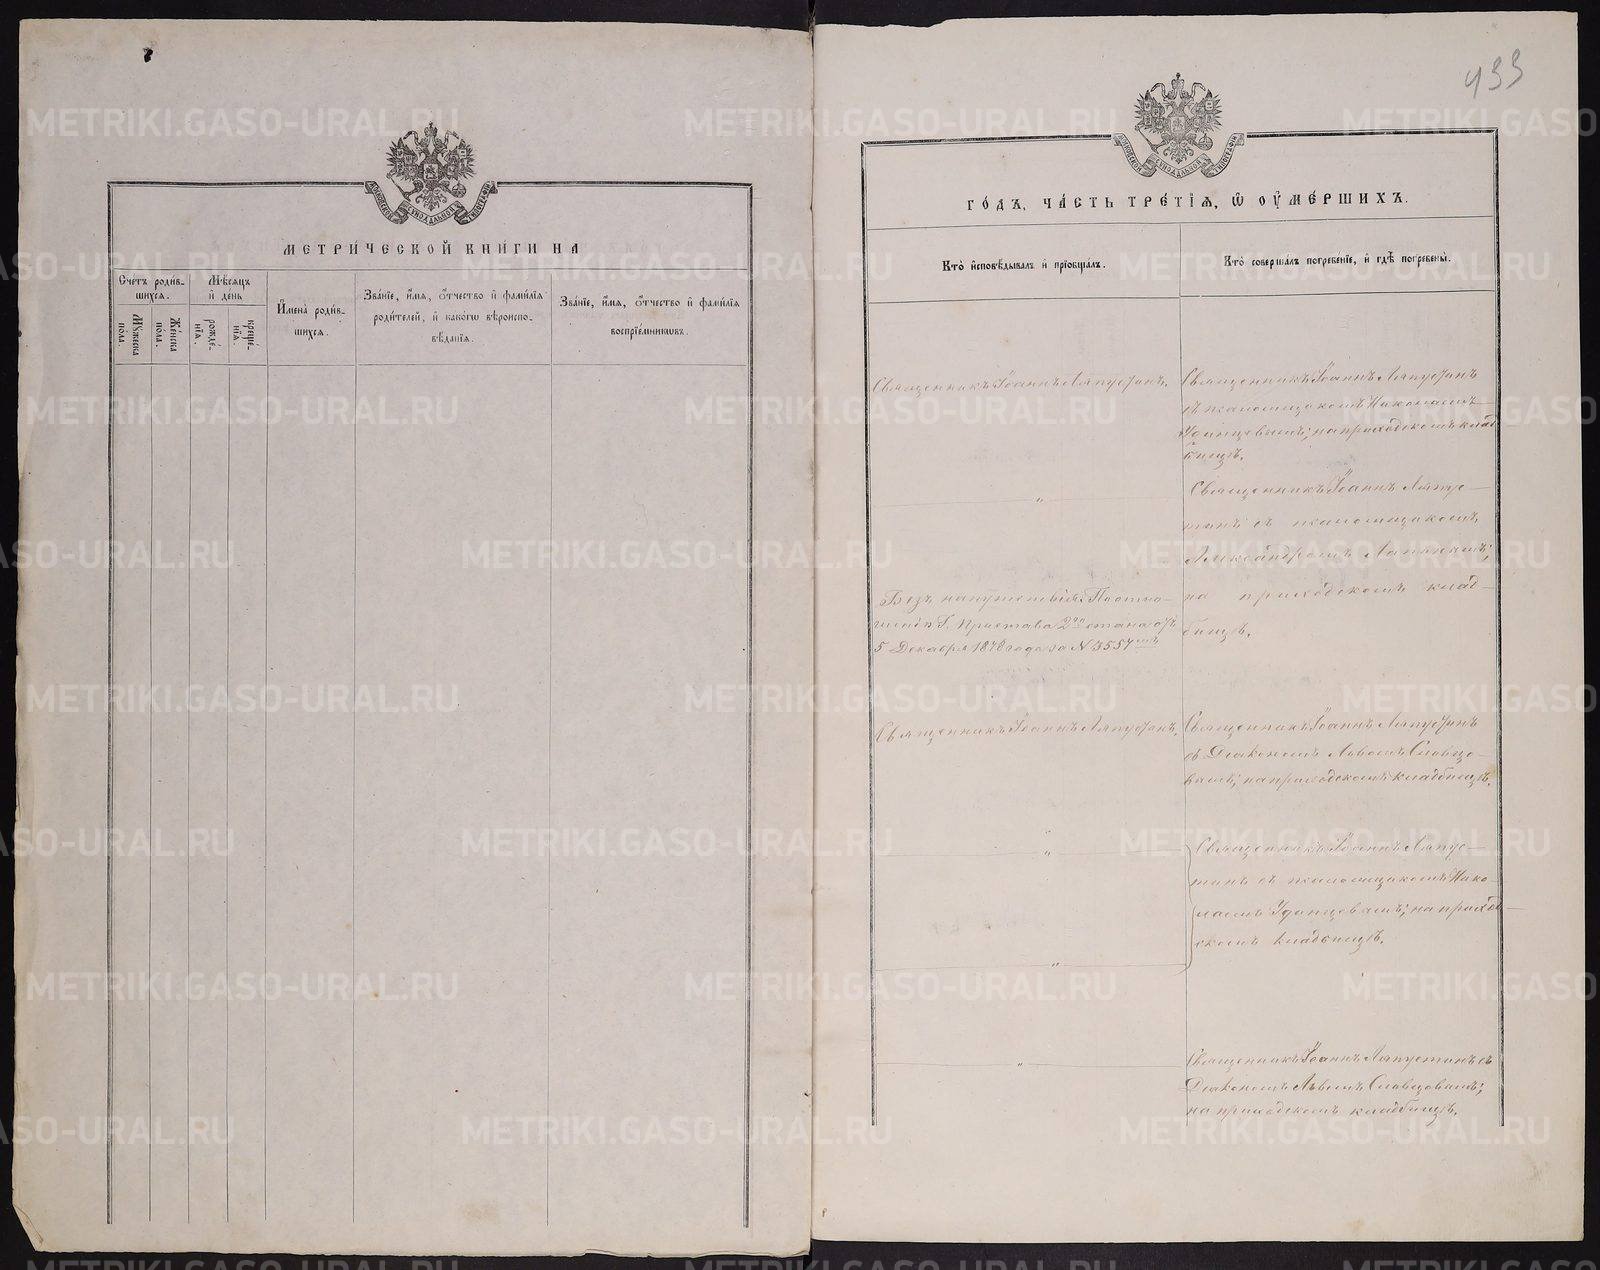 МЕТРИ́ЧЕСКОЙ КНИ́ГИ НА
Сче́тъ роди́в-
шихся.
Мѣ́сяцъ
и день
Мꙋ́жеска
по́ла.
Же́нска
по́ла.
рожде́-
нїя.
креще́-
нїя.
Имена̀ роди́в-
шихся.
Зва́нїе, и́мя, о́тчество и фами́лїя
роди́телей, и како́гѡ вѣроиспо-
вѣ́данїя.
Зва́нїе, и́мя, о́тчество и фами́лїя
воспрїе́мникѡвъ.
433
МОСКОВСКОЙ СѴНОДАЛЬНОЙ ТИПОГРАФІИ
ГО́ДЪ, ЧА́СТЬ ТРЕ́ТЇЯ, Ѡ ОУМЕ́РШИХЪ.
Кто̀ исповѣ́дывалъ и прїобща́лъ.
Кто̀ соверша́лъ погребе́нїе, и гдѣ̀ погребены̀.
Священникъ Іоаннъ Ляпустинъ.
Священникъ Іоаннъ Ляпустинъ
съ псаломщикомъ Николаемъ
Удинцевымъ; на приходскомъ клад-
бищѣ.
"
Священникъ Іоаннъ Ляпу-
стинъ съ псаломщикомъ
Александромъ
на приходскомъ клад-
бищѣ.
Безъ напутствія. По отно-
шенію Г. Пристава 2го стана отъ
5 Декабря 1878 года за N 3557мъ
Священникъ Іоаннъ Ляпустинъ.
Священникъ Іоаннъ Ляпустинъ
съ Діакономъ Львомъ Словцо-
вымъ; на приходскомъ кладбищѣ.
"
Священникъ Іоаннъ Ляпу-
стинъ съ псаломщикомъ Нико-
лаемъ Удинцевымъ; на приход-
скомъ кладбищѣ.
"
"
Священникъ Іоаннъ Ляпустинъ съ
Діакономъ Львомъ Словцовымъ;
на приходскомъ кладбищѣ.
METRIKI.GASO-URAL.RU